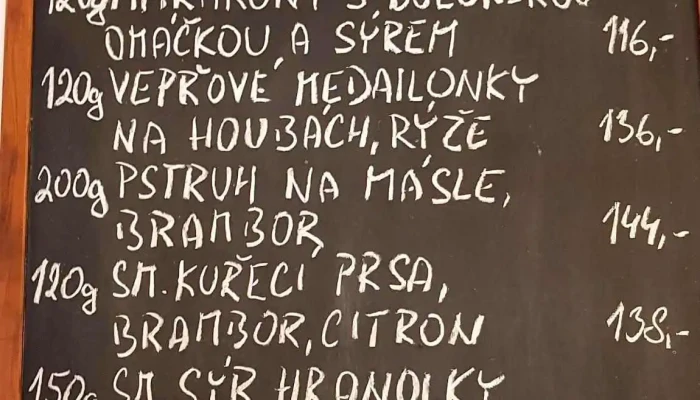 120g MAKARONY S BOLOŇSKOU
OMÁČKOU A SÝREM 116,-
120g VEPŘOVÉ MEDAILONKY
NA HOUBÁCH, RÝŽE 136,-
200g PSTRUH NA MÁSLE,
BRAMBOR 144,-
120g SM. KUŘECÍ PRSA,
BRAMBOR, CITRON 138,-
150g SM. SÝR HRANOLKY